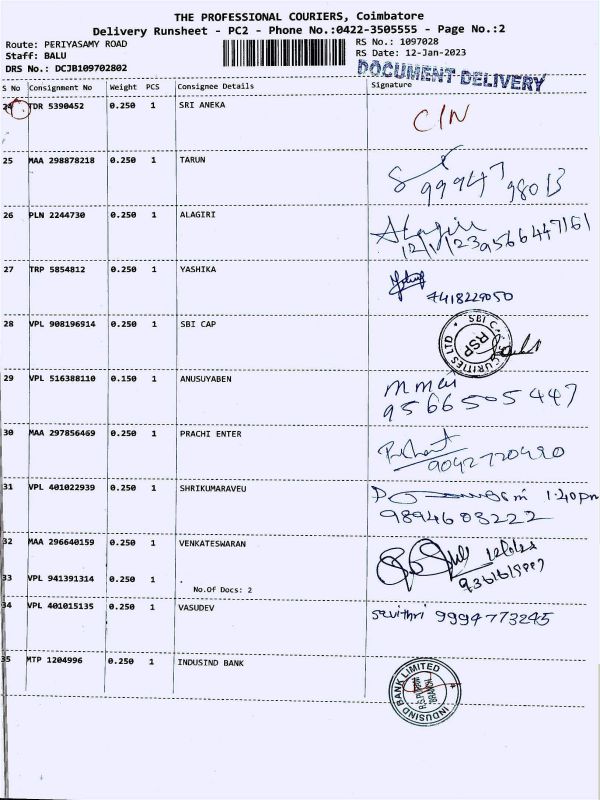 THE PROFESSIONAL COURIERS, Coimbatore
Delivery Runsheet - PC2 - Phone No.:0422-3505555 - Page No.:2
Route: PERIYASAMY ROAD RS No.: 1097028
Staff: BALU RS Date: 12-Jan-2023
DRS No.: DCJB109702802 DOCUMENT DELIVERY
S No Consignment No Weight PCS Consignee Details Signature
24 TDR 5390452 0.250 1 SRI ANEKA C/N
25 MAA 298878218 0.250 1 TARUN
99947 98013
26 PLN 2244730 0.250 1 ALAGIRI Alagiri
12/1/23 9566447161
27 TRP 5854812 0.250 1 YASHIKA
7418229050
28 VPL 908196914 0.250 1 SBI CAP SBI CAP SECURITIES LTD RSP
29 VPL 516388110 0.150 1 ANUSUYABEN
9566505447
30 MAA 297856469 0.250 1 PRACHI ENTER
9042720490
31 VPL 401022939 0.250 1 SHRIKUMARAVEU 1:40pm
9894603222
32 MAA 296640159 0.250 1 VENKATESWARAN
33 VPL 941391314 0.250 1
No.Of Docs: 2
34 VPL 401015135 0.250 1 VASUDEV Savithri 9994773245
35 MTP 1204996 0.250 1 INDUSIND BANK INDUSIND BANK LIMITED
BRANCH